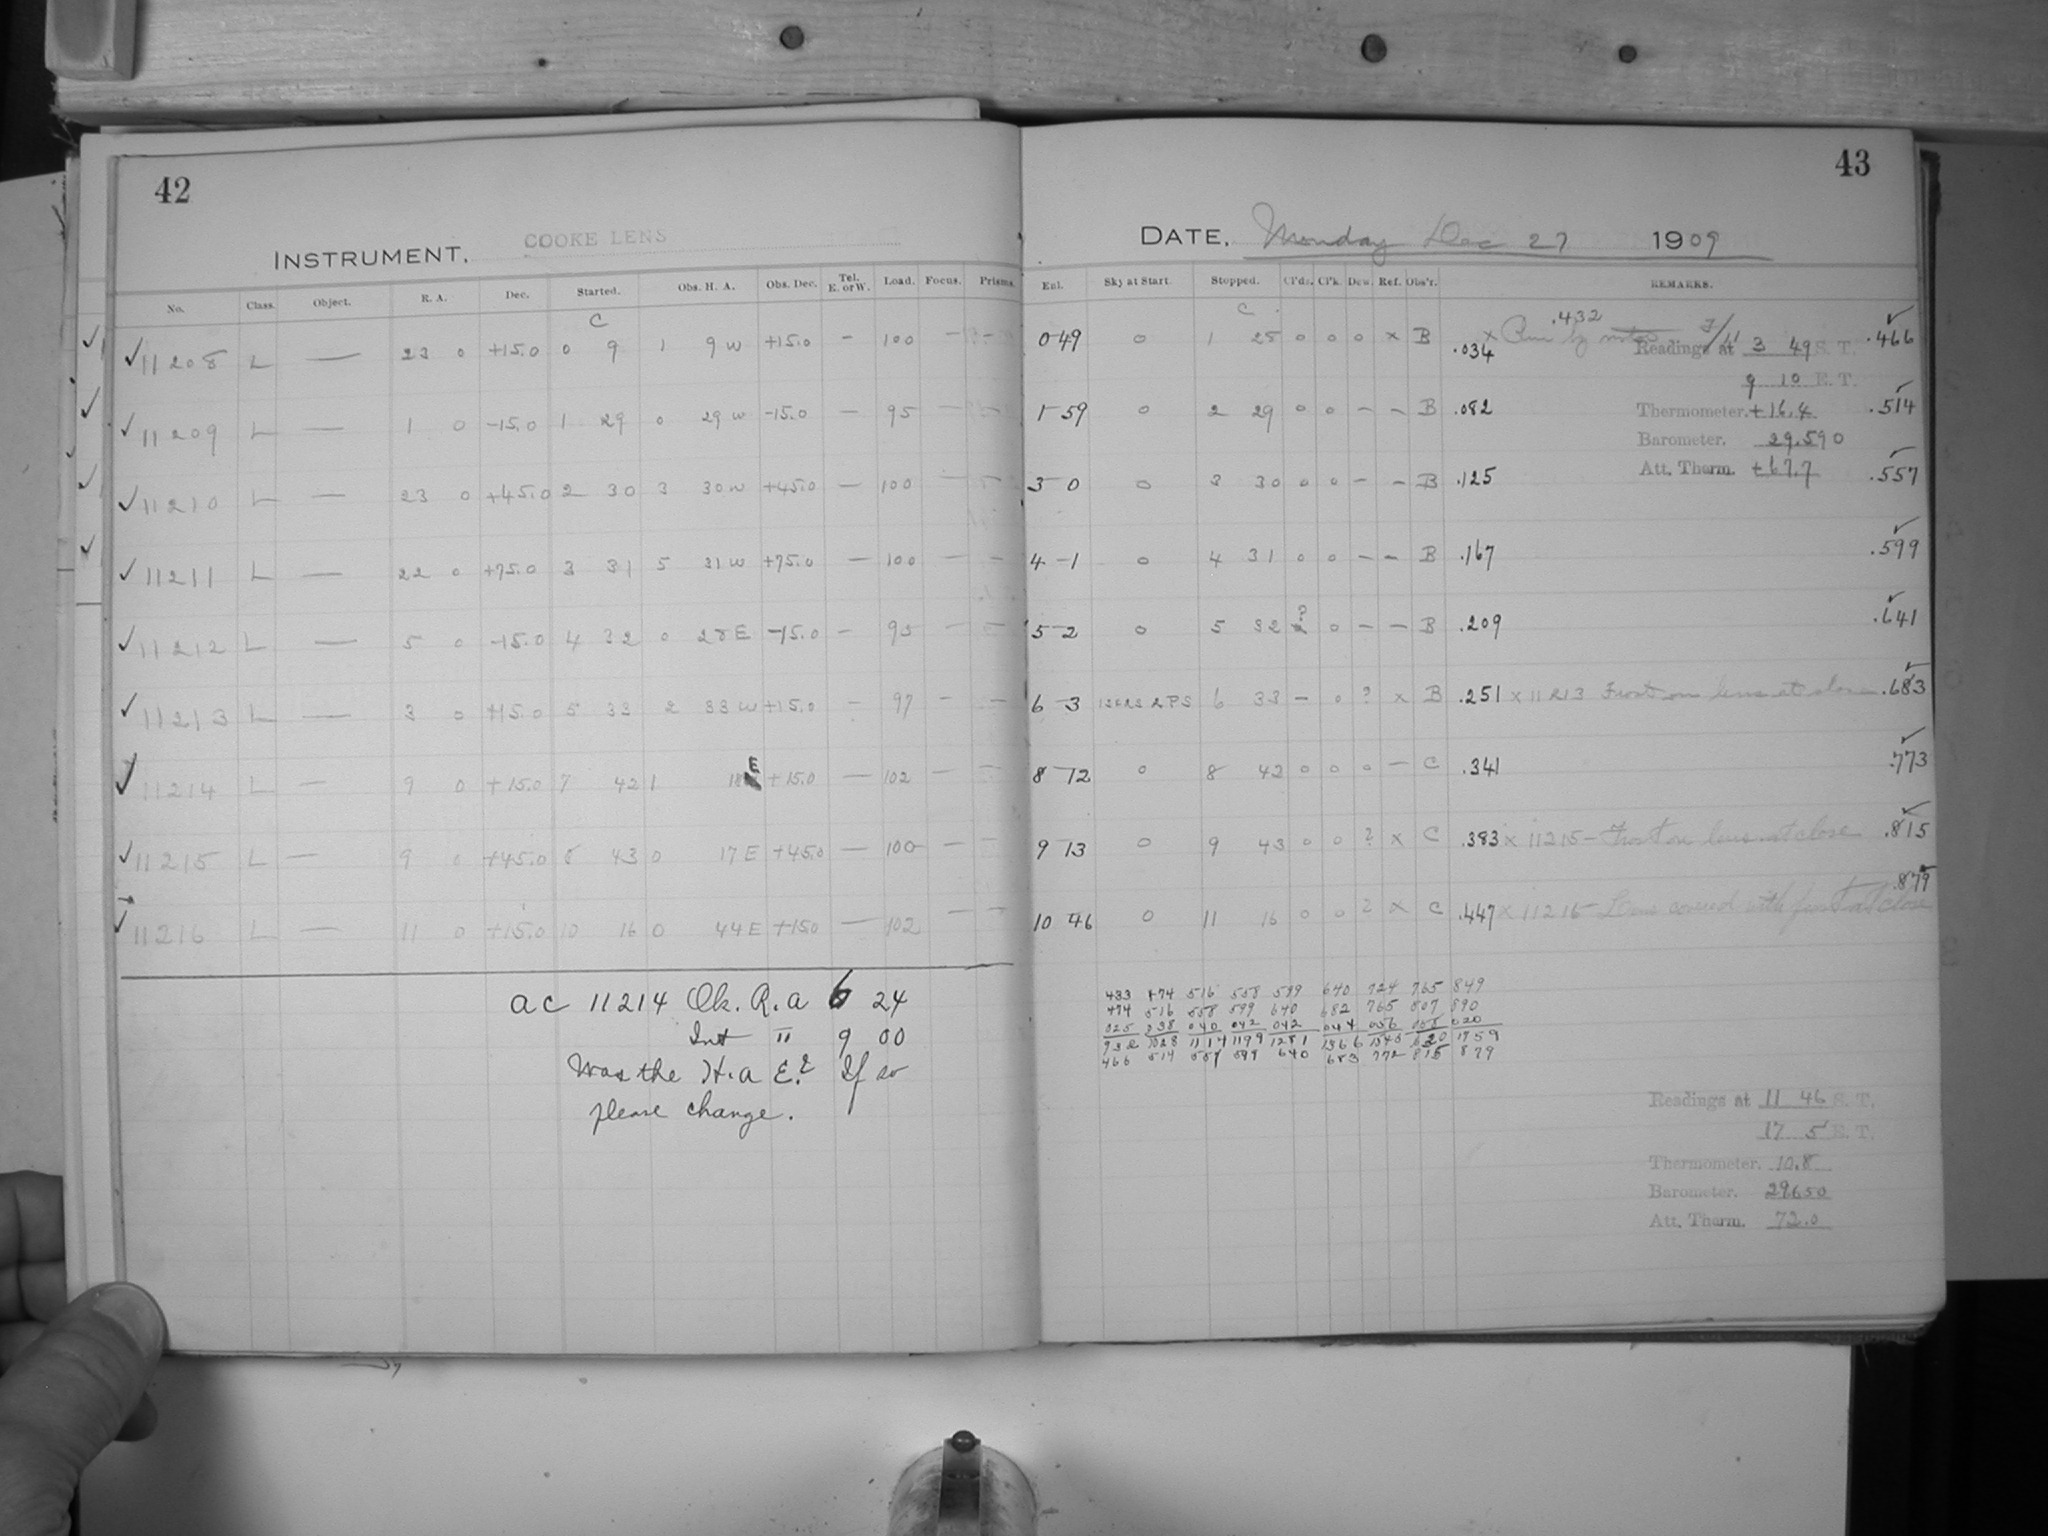 42
INSTRUMENT. COOKE LENS
No. Class. Object. R. A. Dec. Started. Obs. H. A. Obs. Dec. Tel. E. or W. Load. Focus. Prisms.
C
11208 L — 23 0 +15.0 0 9 1 9 W +15.0 — 100 — —
11209 L — 1 0 -15.0 1 29 0 29 W -15.0 — 95 — —
11210 L — 23 0 +45.0 2 30 3 30 W +45.0 — 100 — —
11211 L — 22 0 +75.0 3 31 5 31 W +75.0 — 100 — —
11212 L — 5 0 -15.0 4 32 0 28 E -15.0 — 95 — —
11213 L — 3 0 +15.0 5 33 2 33 W +15.0 — 97 — —
11214 L — 9 0 +15.0 7 42 1 18 E +15.0 — 102 — —
11215 L — 9 0 +45.0 8 43 0 17 E +45.0 — 100 — —
11216 L — 11 0 +15.0 10 16 0 44 E +15.0 — 102 — —
ac 11214 Ok. R. a 6 24
Int " 9 00
Was the H. a E? If so
please change.
43
DATE. Monday Dec 27 1909
Enl. Sky at Start. Stopped. Cl'ds. Cl'k. Dew. Ref. Obs'r. REMARKS.
C .432
0 49 0 1 25 0 0 0 x B .034 x .466
Readings at 3 49 S. T.
9 10 E. T.
1 59 0 2 29 0 0 — — B .082 Thermometer. +16.4 .514
Barometer. 29.590
3 0 0 3 30 0 0 — — B .125 Att. Therm. +67.7 .557
4 1 0 4 31 0 0 — — B .167 .599
5 2 0 5 32 ? 0 — — B .209 .641
6 3 2 P S 6 33 — 0 ? x B .251 x 11213 Frost on lens at close .683
8 12 0 8 42 0 0 0 — C .341 .773
9 13 0 9 43 0 0 ? x C .383 x 11215 — Frost on lens at close .815
10 46 0 11 16 0 0 ? x C .447 x 11216 Lens covered with frost at close .879
433 474 516 558 599 640 724 765 849
474 516 558 599 640 682 765 807 890
025 038 040 042 042 044 056 058 020
932 1028 1114 1199 1281 1366 1545 1630 1759
466 514 557 599 640 683 772 815 879
Readings at 11 46 S. T.
17 5 E. T.
Thermometer. 10.8
Barometer. 29650
Att. Therm. 72.0